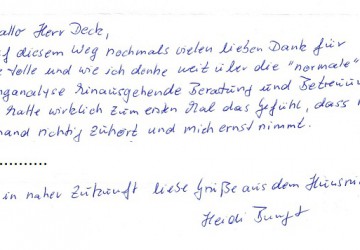 allo Herr Deck,
f diesem Weg nochmals vielen lieben Dank für
e tolle und wie ich denke weit über die "normale"
nganalyse hinausgehende Beratung und Betreuun
hatte wirklich zum ersten Mal das Gefühl, dass
mand richtig zuhört und mich ernst nimmt.
............
in naher Zukunft liebe Grüße aus dem
Heidi